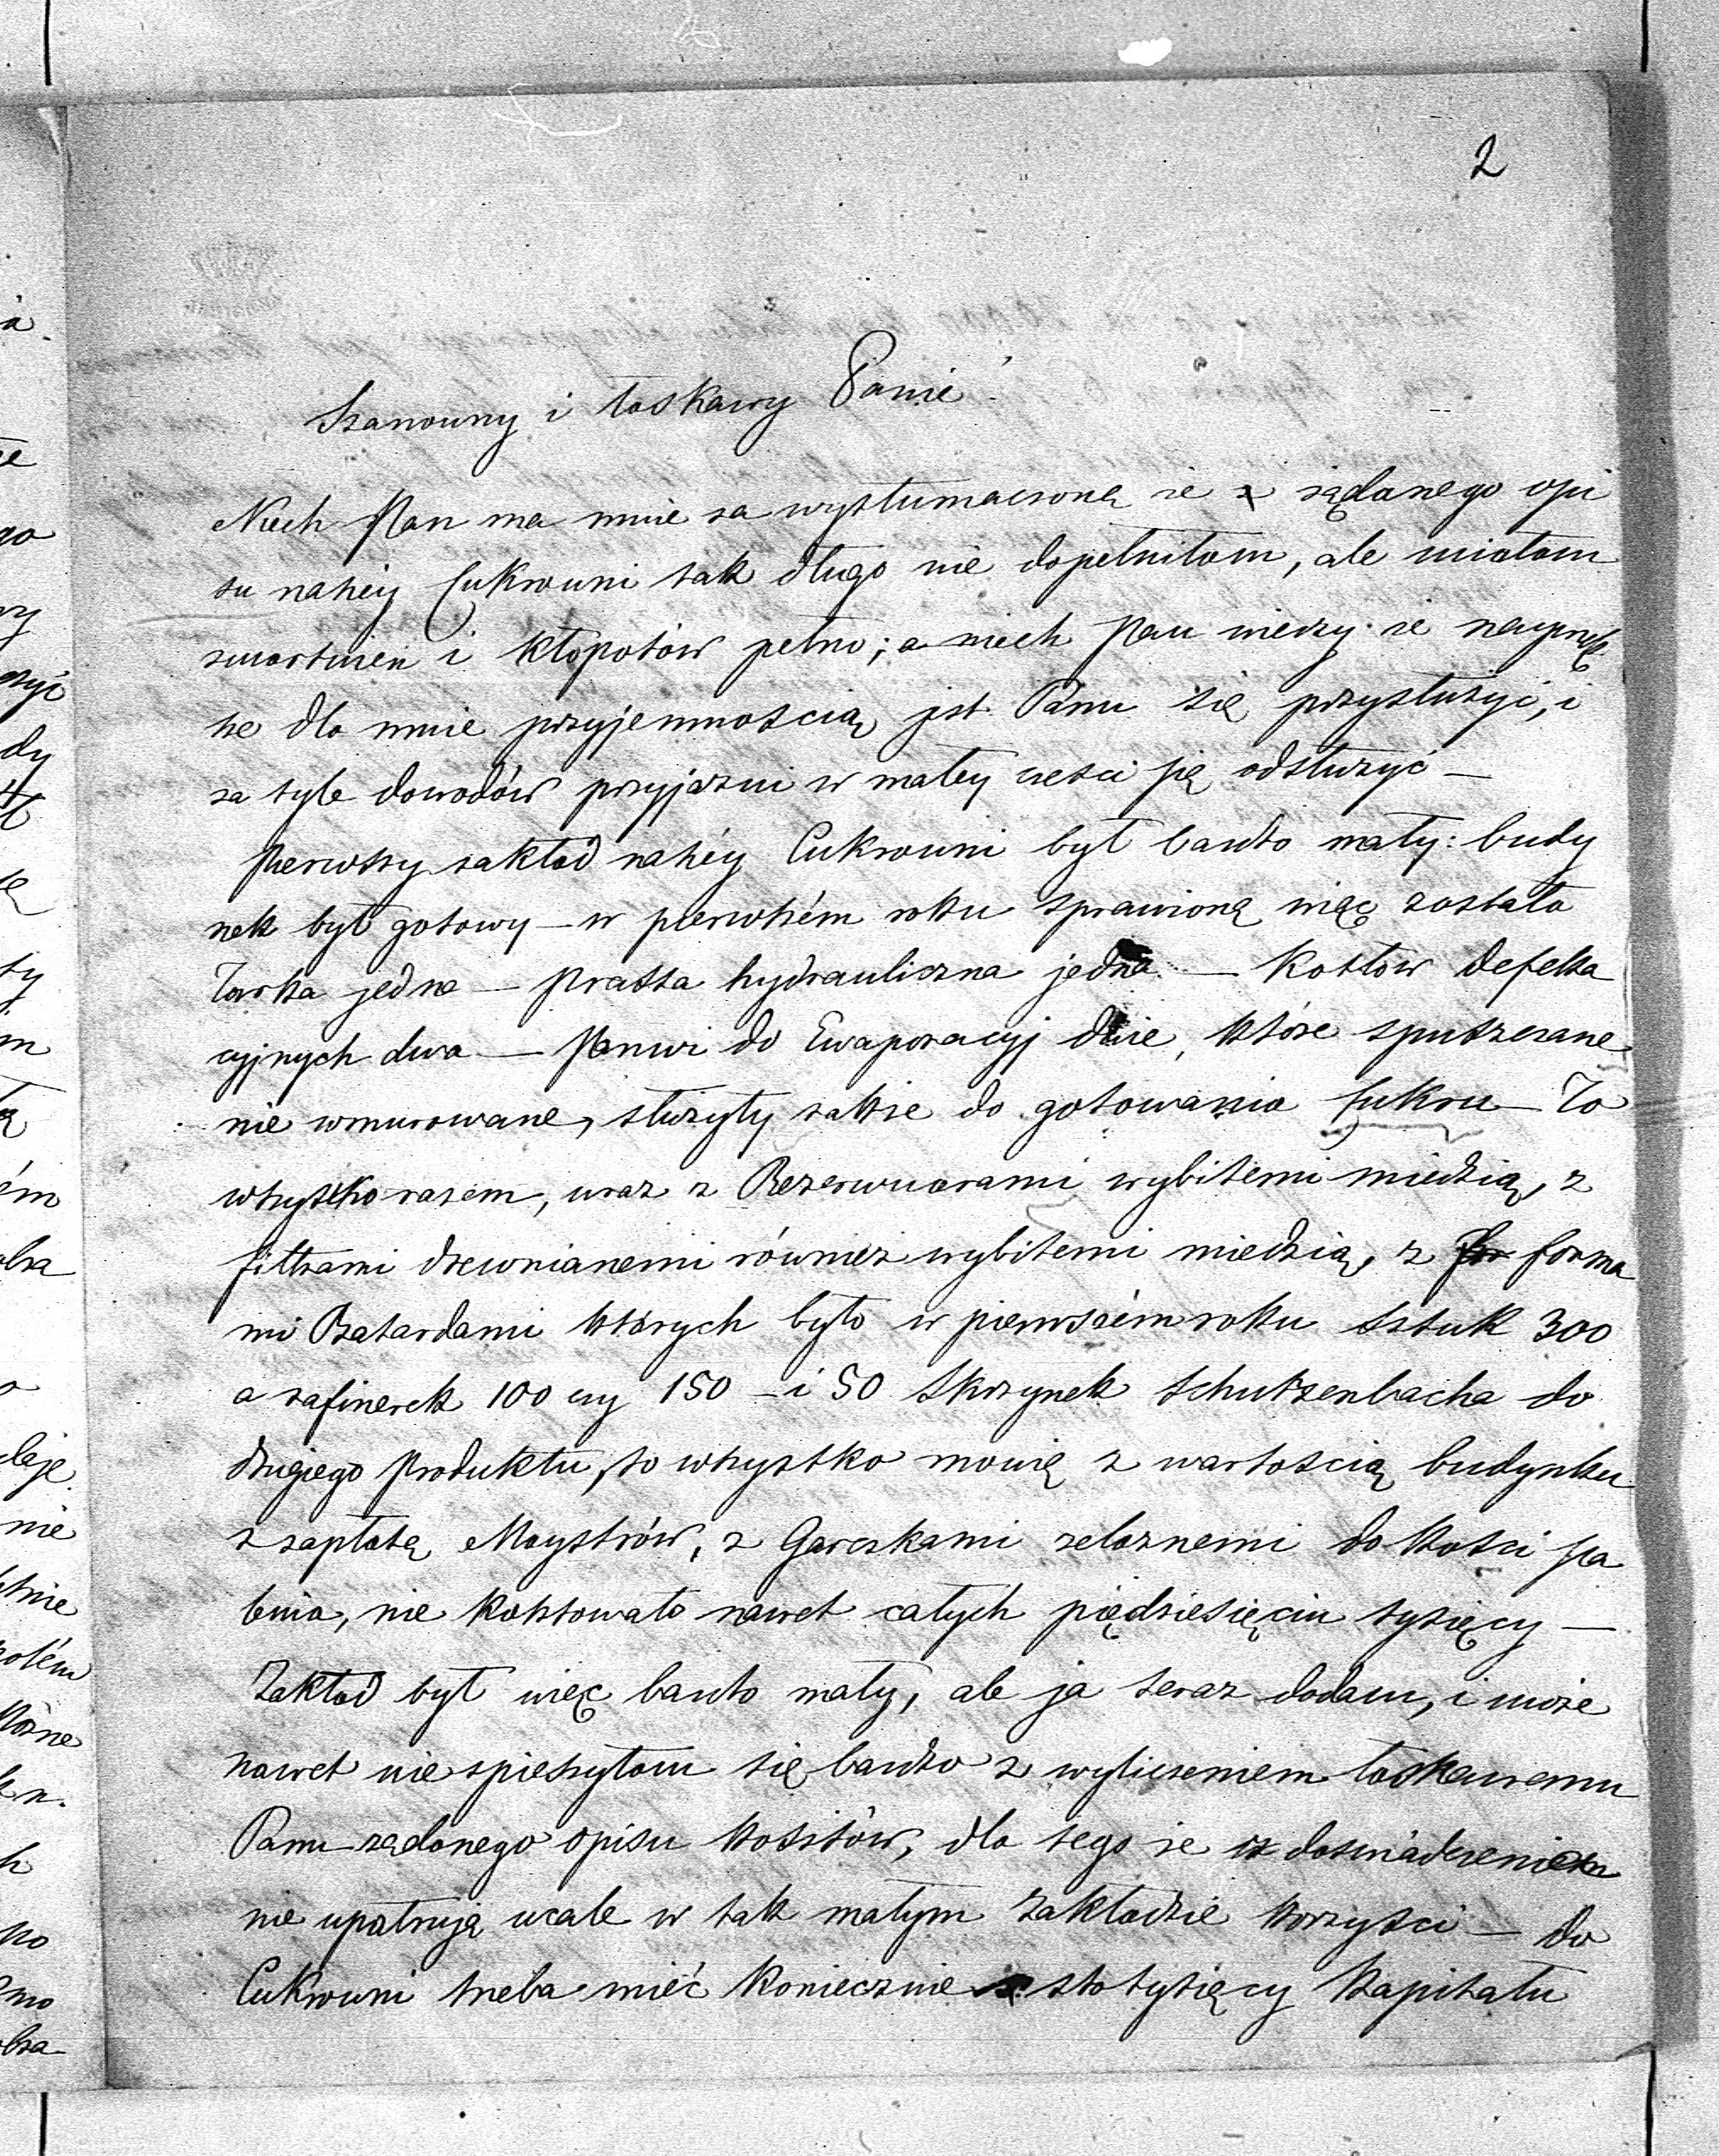 2
Szanowny i łaskawy Panie!
Niech Pan ma mnie za wytłumaczoną że z żądanego opi
su naszéy Cukrowni tak długo nie dopełniłam, ale miałam
zmartwień i kłopotów pełno; a niech Pan wierzy że naywięk
sze dla mnie przyjemnością jest Panu się przysłużyć, i
za tyle dowodów przyjazni w małey części się odsłużyć —
Pierwszy zakład naszéy Cukrowni był bardzo mały: budy
nek był gotowy — w pierwszém roku sprawioną więc została
Tarka jedna — Prassa hydrauliczna jedna — Kotłów defeka
cyjnych dwa — Panwi do Ewaporacyj dwie, które spuszczane
nie wmurowane, służyły także do gotowania Cukru — To
wszystko razem, wraz z Rezerwuarami wybitemi miedzią, z
filtrami drewnianemi również wybitemi miedzią, z for forma
mi Batardami których było w pierwszém roku sztuk 300
a rafinerek 100 czy 150 — i 50 skrzynek Schutzenbacha do
drugiego produktu, to wszystko mówię z wartością budynku
z zapłatą Maystrów, z Garczkami żelaznemi do kości pa
lenia, nie kosztowało nawet całych piędziesięciu tysięcy —
Zakład był więc bardzo mały, ale ja teraz dodam, i może
nawet nie spieszyłam się bardzo z wyliczeniem łaskawemu
Panu żądanego opisu kosztów, dla tego że z doświadczeniem
nie upatruję wcale w tak małym zakładzie korzyści — do
Cukrowni trzeba mieć koniecznie sto tysięcy kapitału